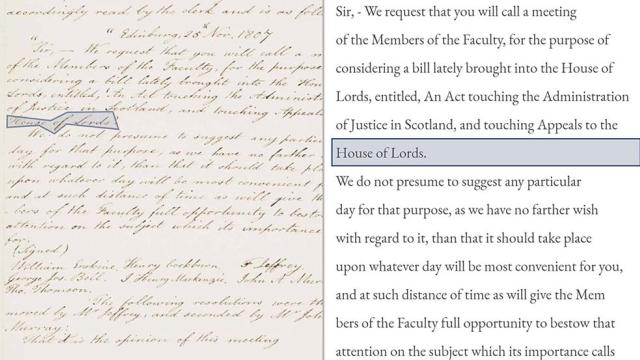 accordingly read by the clerk and is as foll
" "Edinburg, 25th Nov. 1807
" Sir, - We request that you will call a m
of the Members of the Faculty, for the purpose
considering a bill lately brought into the Hou
Lords, entitled, An Act touching the Administr
of Justice in Scotland, and touching Appeals
House of Lords.
We do not presume to suggest any particu
day for that purpose, as we have no farther
with regard to it, than that it should take pla
upon whatever day will be most convenient f
and at such distance of time as will give th
bers of the Faculty full opportunity to bestow
attention on the subject which its importance
for.
(Signed)
William Erskine, Henry Cockburn, F Jeffrey
George Jos. Bell, J Henry Mackenzie, John A Murr
Tho. Thomson.
The following resolutions were th
moved by Mr Jeffrey, and seconded by Mr Joh
Murray:
That it is the opinion of this meeting
Sir, - We request that you will call a meeting
of the Members of the Faculty, for the purpose of
considering a bill lately brought into the House of
Lords, entitled, An Act touching the Administration
of Justice in Scotland, and touching Appeals to the
House of Lords.
We do not presume to suggest any particular
day for that purpose, as we have no farther wish
with regard to it, than that it should take place
upon whatever day will be most convenient for you,
and at such distance of time as will give the Mem
bers of the Faculty full opportunity to bestow that
attention on the subject which its importance calls